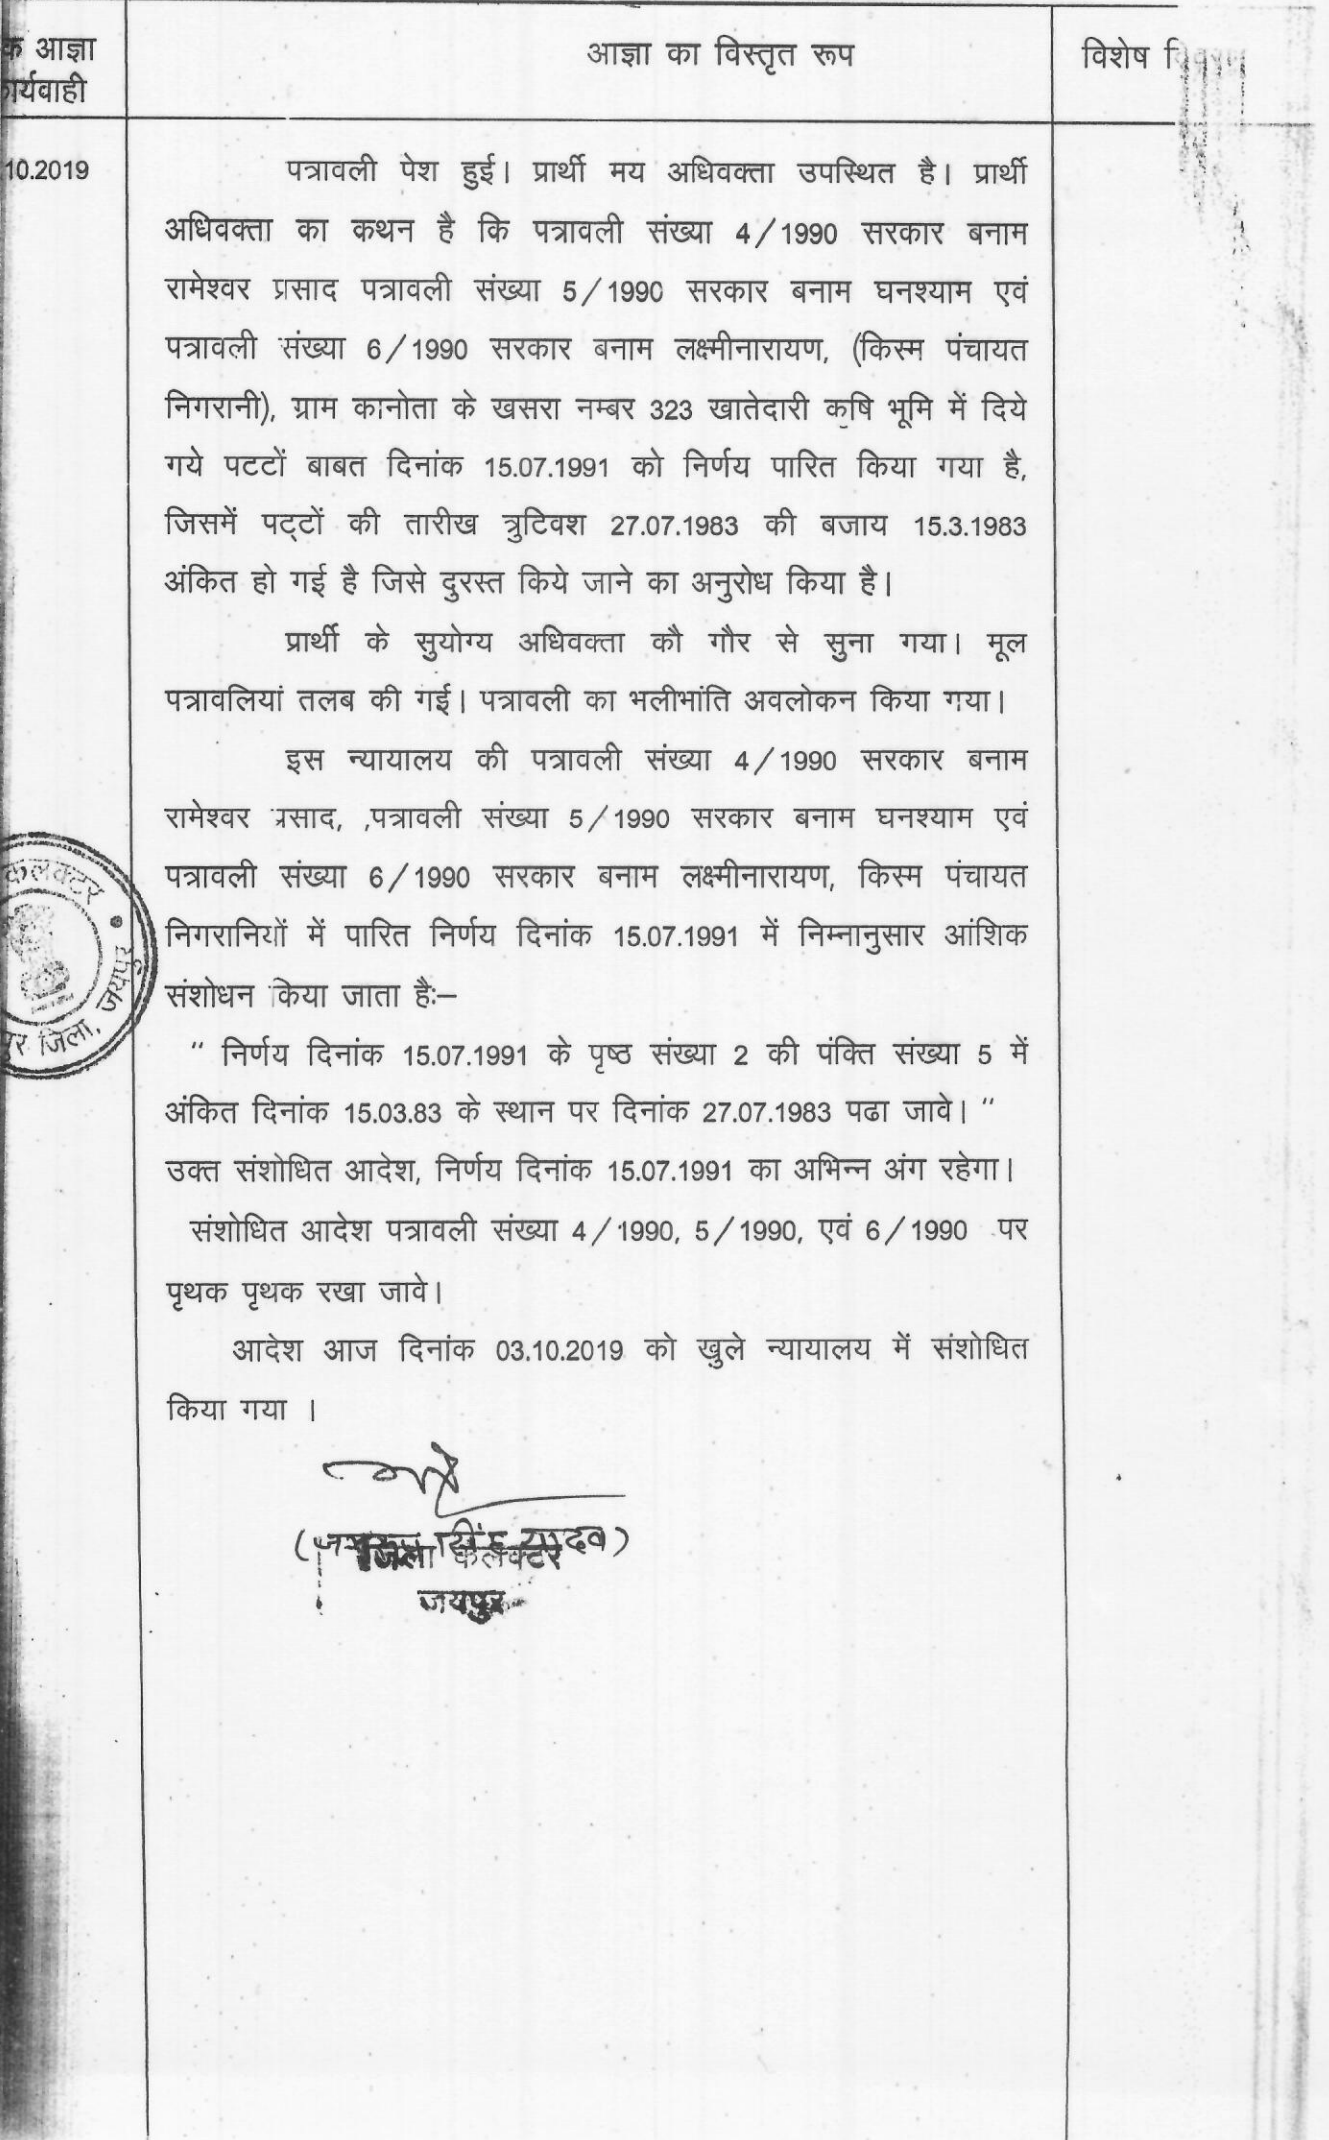 आज्ञा
कार्यवाही
आज्ञा का विस्तृत रूप
विशेष
10.2019
पत्रावली पेश हुई। प्रार्थी मय अधिवक्ता उपस्थित है। प्रार्थी
अधिवक्ता का कथन है कि पत्रावली संख्या 4/1990 सरकार बनाम
रामेश्वर प्रसाद पत्रावली संख्या 5/1990 सरकार बनाम घनश्याम एवं
पत्रावली संख्या 6/1990 सरकार बनाम लक्ष्मीनारायण, (किस्म पंचायत
निगरानी), ग्राम कानोता के खसरा नम्बर 323 खातेदारी कृषि भूमि में दिये
गये पटटों बाबत दिनांक 15.07.1991 को निर्णय पारित किया गया है,
जिसमें पट्टों की तारीख त्रुटिवश 27.07.1983 की बजाय 15.3.1983
अंकित हो गई है जिसे दुरस्त किये जाने का अनुरोध किया है।
प्रार्थी के सुयोग्य अधिवक्ता कौ गौर से सुना गया। मूल
पत्रावलियां तलब की गई। पत्रावली का भलीभांति अवलोकन किया गया।
इस न्यायालय की पत्रावली संख्या 4/1990 सरकार बनाम
रामेश्वर प्रसाद, ,पत्रावली संख्या 5/1990 सरकार बनाम घनश्याम एवं
पत्रावली संख्या 6/1990 सरकार बनाम लक्ष्मीनारायण, किस्म पंचायत
निगरानियों में पारित निर्णय दिनांक 15.07.1991 में निम्नानुसार आंशिक
संशोधन किया जाता हैः–
" निर्णय दिनांक 15.07.1991 के पृष्ठ संख्या 2 की पंक्ति संख्या 5 में
अंकित दिनांक 15.03.83 के स्थान पर दिनांक 27.07.1983 पढा जावे। "
उक्त संशोधित आदेश, निर्णय दिनांक 15.07.1991 का अभिन्न अंग रहेगा।
संशोधित आदेश पत्रावली संख्या 4/1990, 5/1990, एवं 6/1990 पर
पृथक पृथक रखा जावे।
आदेश आज दिनांक 03.10.2019 को खुले न्यायालय में संशोधित
किया गया ।
यादव)
जिला कलक्टर
जयपुर
कलक्टर
जिला, जयपुर